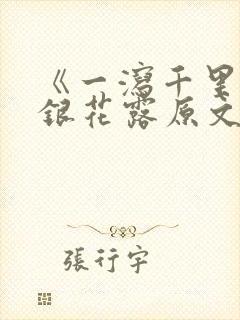 《一瀉千里
銀花露原文
張行宇